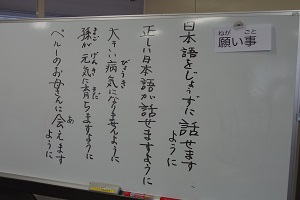 ねが ごと
願い事
日本語をじょうずに話せます
ように
正しい日本語が話せますように
びょうき
大きい病気になりませんように
まご げんき そだ
孫が元気に育ちますように
あ
ペルーのお母さんに会えます
ように